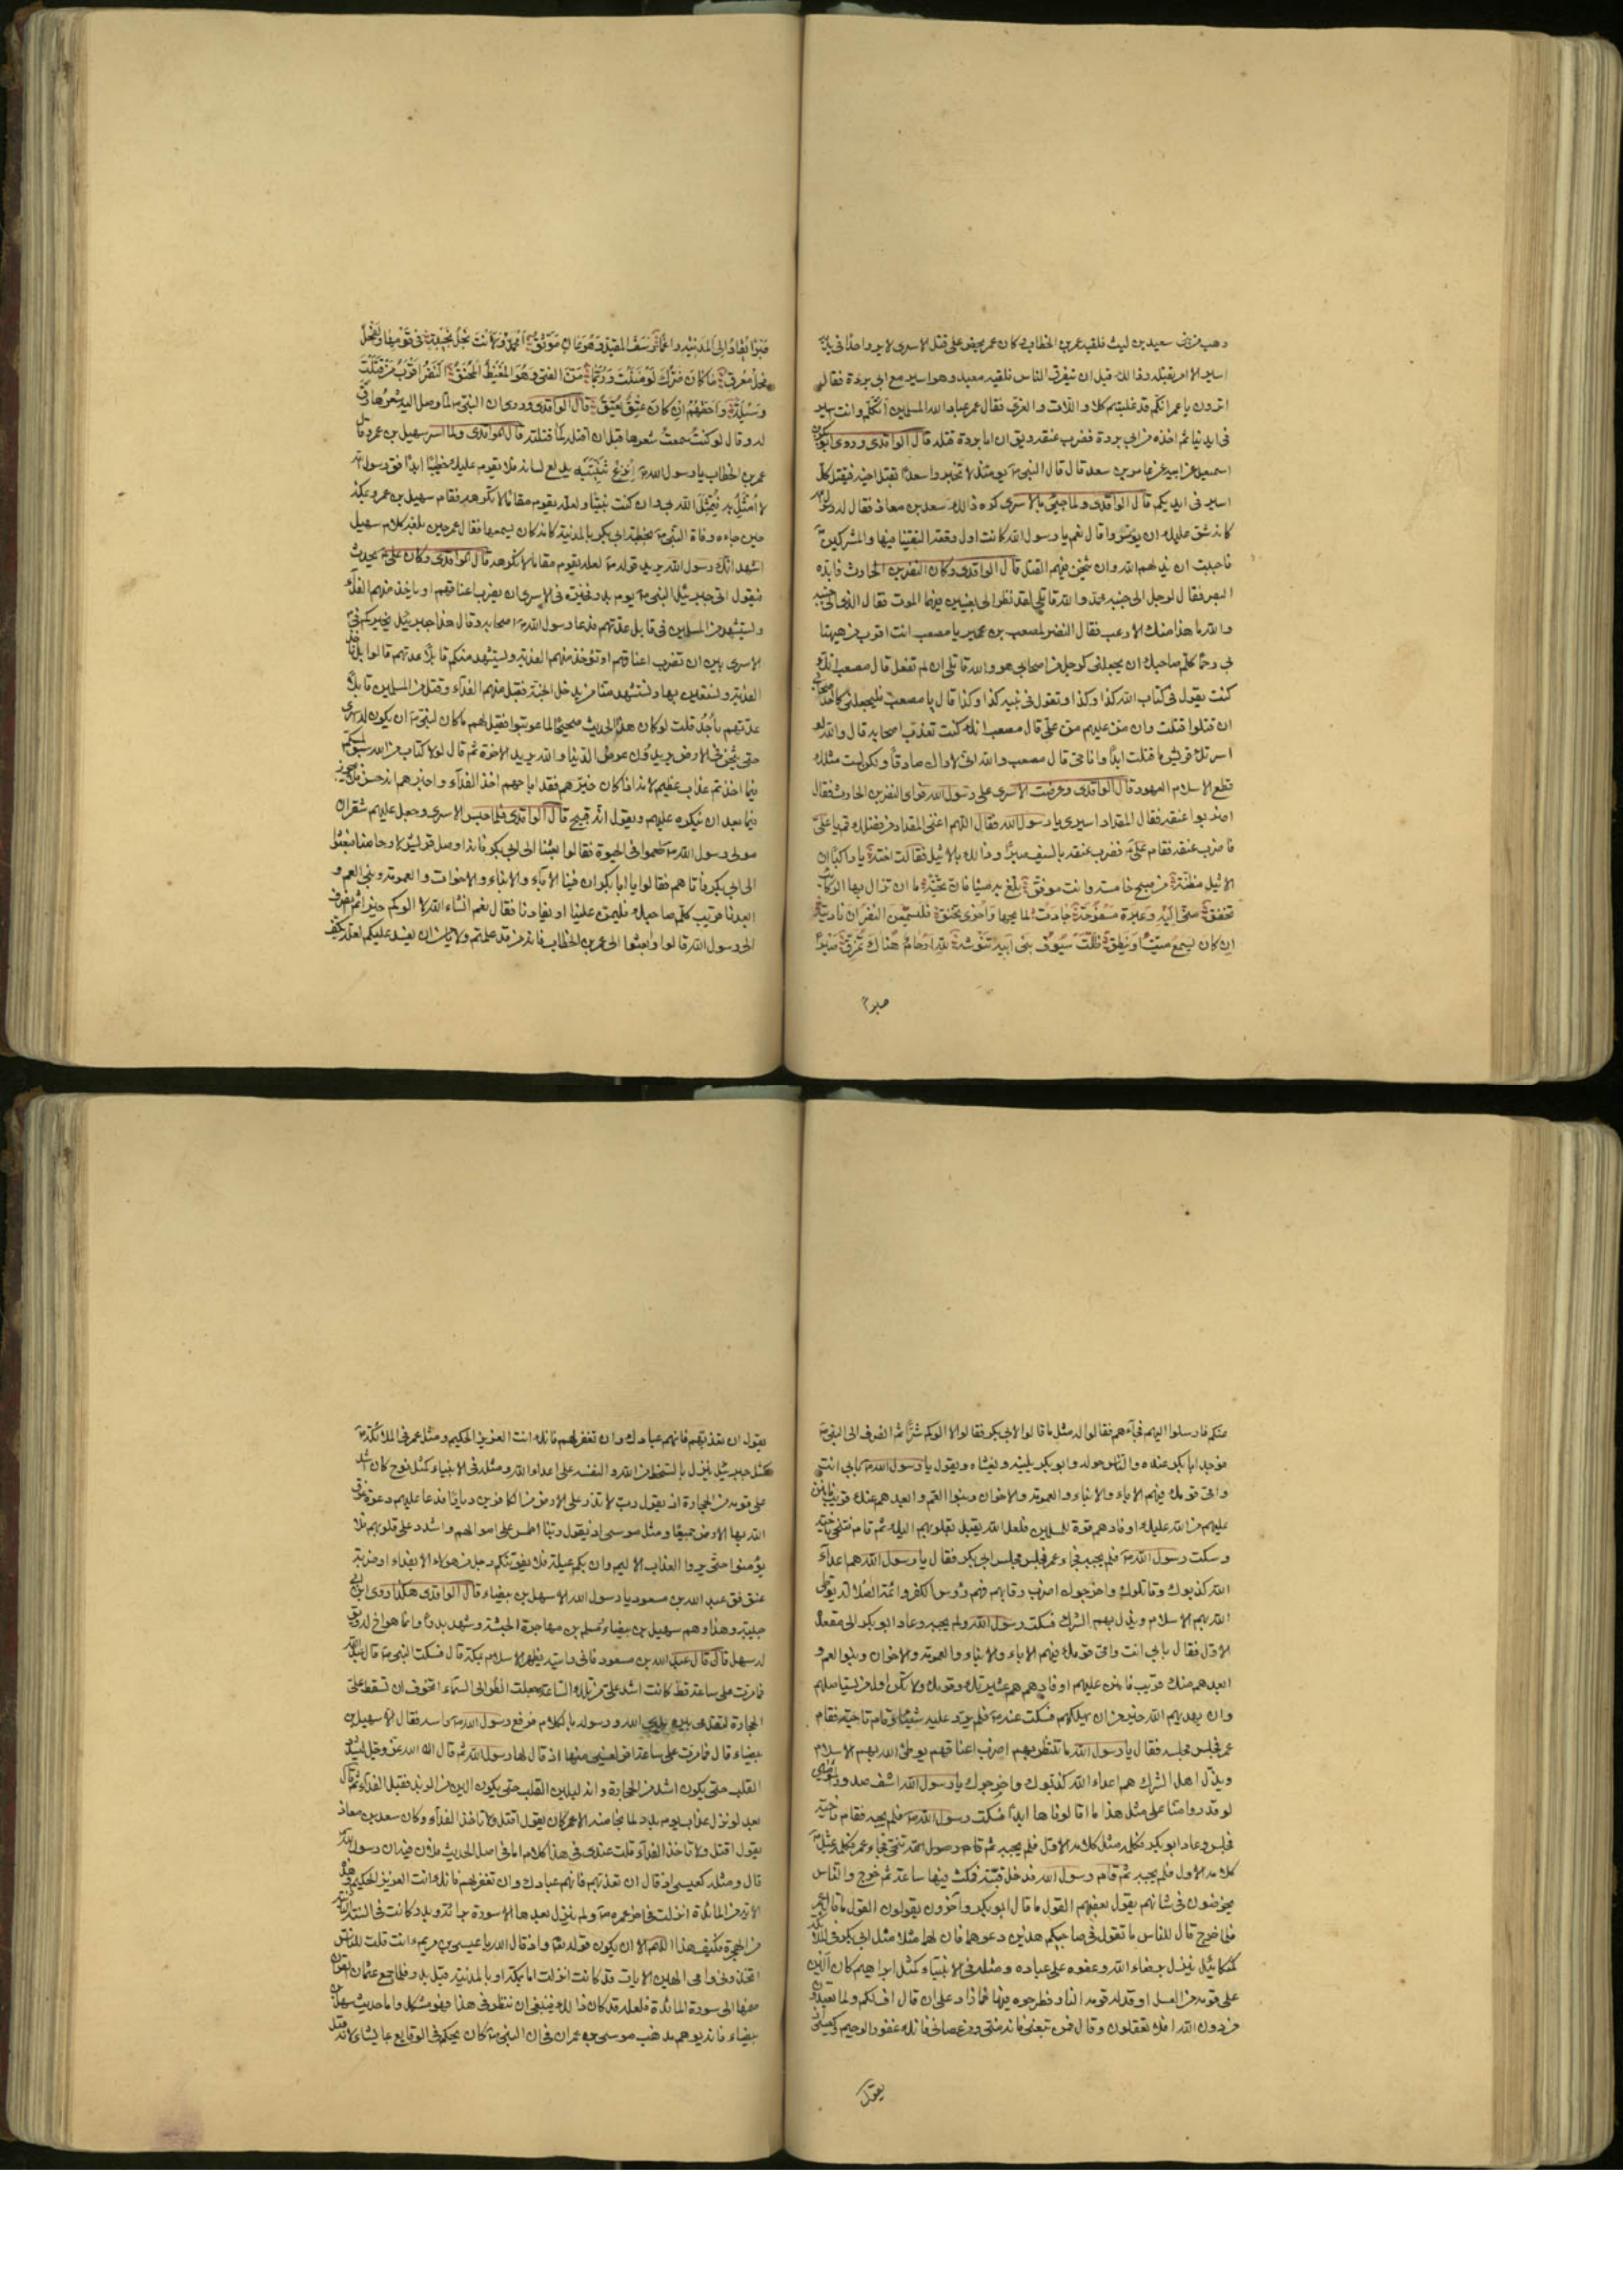 وهب من بنى سعيد بن ليث فلقيه عمر بن الخطاب و كان عمر يحض على قتل الاسرى لا يرى احدا فى يديه
اسير الا امر بقتله و ذالك قبل ان يتفرق الناس فلقيه معبد و هو اسير مع ابى بردة فقال
اترون يا عمر انكم قد غلبتم كلا و اللات و العزى فقال عمر عباد الله المسلمين أتكلم و انت اسير
فى ايدينا ثم اخذه من ابى بردة فضرب عنقه و يق ان ابا بردة قتله قال الواقدى و روى ابوبكر بن
اسمعيل عن ابيه عن عامر بن سعد قال قال النبى ص يومئذ لا تخبروا سعدا بقتل اخيه فيقتل كل
اسير فى ايديكم قال الواقدى و لما جيئ بالاسرى كره ذالك سعد بن معاذ فقال له رسول الله ص
كانه شق عليك ان يؤسروا قال نعم يا رسول الله كانت اول وقعة التقينا فيها و المشركين
فاحببت ان يذلهم الله و ان يثخن فيهم القتل قال الواقدى و كان النضر بن الحادث فابده
البصر فقال لرجل الى جنبه محمد و الله قاتلى لقد نظر الى بعينين فيهما الموت فقال الذى الى جنبه
و الله ما هذا منك الا رعب فقال النضر لمصعب بن عمير يا مصعب انت اقرب من هيهنا
بى رحما كلم صاحبك ان يجعلنى كرجل من اصحابى هو و الله قاتلى ان لم تفعل قال مصعب انك
كنت تقول فى كتاب الله كذا و كذا و تقول فى نبيه كذا و كذا قال يا مصعب فليجعلنى كاحد اصحابى
ان قتلوا قتلت و ان من عليهم من على قال مصعب انك كنت تعذب اصحابه قال و الله لو
اسرتك قريش ما قتلت ابدا و انا حى قال مصعب و الله انى لاراك صادقا و لكن لست مثلك
قطع الاسلام العهود قال الواقدى و عرضت الاسرى على رسول الله فراى النضر بن الحارث فقال
اضربوا عنقه فقال المقداد اسيرى يا رسول الله فقال اللهم اغن المقداد من فضلك قم يا على
فاضرب عنقه فقام على ع فضرب عنقه بالسيف صبرا و ذالك بالاثيل فقالت اخته يا راكبا ان
الاثيل مظنة من صبح خامسة و انت موفق بلغ به ميتا فان تحية ما ان تزال بها الركائب
تخفق منى اليه و عبرة مسفوحة جادت لمايحها و اخرى تخنق فليسمعن النضر ان ناديته
ان كان يسمع ميتا او ينطق ظلت سيوف بنى ابيه تنوشه لله ارحام هناك تمزق صبرا
صبرا
صبرا يقاد الى المدينة راغما رسف المقيد و هو عان موثق امحمد و لانت نجل نجيبة فى قومها و الفحل
فحل معرق ما كان ضرك لو مننت و ربما من الفتى و هو المغيظ المحنق النضر اقرب من قتلت
وسيلة و احقهم ان كان عتق يعتق قال الواقدى و روى ان النبى ص لما وصل اليه شعرها رق
له و قال لو كنت سمعت شعرها قبل ان اقتله لما قتلته قال الواقدى و لما اسر سهيل بن عمرو قال
عمر بن الخطاب يا رسول الله ص انزع ثنيتيه يدلع لسانه فلا يقوم عليك خطيبا ابدا فق رسول الله
لا امثل به فيمثل الله بى و ان كنت نبيا و لعله يقوم مقاما لا تكرهه فقام سهيل بن عمرو بمكة
حين جاءه وفاة النبى ص بخطبة ابى بكر بالمدينة كانه كان يسمعها فقال عمر حين بلغه كلام سهيل
اشهد انك رسول الله يريد قوله ص لعله يقوم مقاما لا تكرهه قال الواقدى و كان على ع يحدث
فيقول اتى جبرئيل النبى ص يوم بدر فخيره فى الاسرى ان يضرب اعناقهم او ياخذ منهم الفداء
و يستشهد من المسلمين فى قابل عدتهم فدعا رسول الله ص اصحابه و قال هذا جبرئيل يخيركم فى
الاسرى بين ان تضرب اعناقهم او تؤخذ منهم الفدية و يستشهد منكم قابلا عدتهم قالوا بل ناخذ
الفدية و نستعين بها و يستشهد منا من يدخل الجنة فقبل منهم الفداء و قتل من المسلمين قابلا
عدتهم باحد قلت لو كان هذا الحديث صحيحا لما عوتبوا فقيل لهم ما كان لنبى ص ان يكون له اسرى
حتى يثخن فى الارض يريدون عرض الدنيا و الله يريد الاخرة ثم قال لولا كتاب من الله سبق لمسكم
فيما اخذتم عذاب عظيم لانه اذا كان خيرهم فقد اباحهم اخذ الفداء و اخبرهم انه حسن فلا يجوز
فيما بعد ان ينكره عليهم و يقول انه قبيح قال الواقدى فلما حبس الاسرى و جعل عليهم شقران
مولى رسول الله ص طمعوا فى الحيوة فقالوا بعثنا الى ابى بكر فانه اوصل قريش لارحامنا فبعثوا
الى ابى بكر فاتاهم فقالوا يا ابا بكر ان فينا الآباء و الابناء و الاخوات و العمومة و بنى العم و
ابعدنا قريب كلم صاحبك فليمن علينا او يفادنا فقال نعم انشاء الله لا الوكم خيرا ثم انصرف
الى رسول الله قالوا و ابعثوا الى عمر بن الخطاب فانه من قد علمتم و لا يامن ان يفسد عليكم لعله يكف
عنكم فارسلوا اليهم فجاءهم فقالوا له مثل ما قالوا لابى بكر فقالوا لا الوكم شرا ثم انصرف الى النبى ص
فوجد ابا بكر عنده و الناس حوله و ابو بكر يلينه و يغشاه و يقول يا رسول الله ص بابى انت
و امى قومك فيهم الاباء و الابناء و العمومة و الاخوان و بنوا العم و ابعدهم عنك قريب فامنن
عليهم من الله عليك او فادهم قوة للمسلمين فلعل الله يقبل بقلوبهم اليك ثم قام فتنحى ناحية
و سكت رسول الله ص فلم يجبه فجاء عمر فجلس مجلس ابى بكر فقال يا رسول الله هم اعداء
الله كذبوك و قاتلوك و اخرجوك اضرب رقابهم فهم رؤس الكفر و ائمة الضلالة يوطى
الله بهم الاسلام و يذل بهم الشرك فسكت رسول الله و لم يجبه و عاد ابو بكر الى مقعده
الاول فقال بابى انت و امى قومك فيهم الاباء و الابناء و العمومة و الاخوان و بنوا العم و
ابعدهم منك قريب فامنن عليهم او فادهم هم عشيرتك و قومك و لا تكن اول من يستاصلهم
و ان يهديهم الله خير من ان يهلكهم فسكت عنه ص فلم يرد عليه شيئا و قام ناحية فقام
عمر فجلس مجلسه فقال يا رسول الله ما تنتظر بهم اضرب اعناقهم يوطئ الله بهم الاسلام
و يذل اهل الشرك هم اعداء الله كذبوك و اخرجوك يا رسول الله اشف صدور المؤمنين
لو قدروا منا على مثل هذا ما اقالوناها ابدا فسكت رسول الله ص فلم يجبه فقام ناحية
فجلس و عاد ابو بكر فكلمه مثل كلامه الاول فلم يجبه ثم تنحى فجاء عمر فكلمه بمثل
كلامه الاول فلم يجبه ثم قام رسول الله فدخل قبته فمكث فيها ساعة ثم خرج و الناس
يخوضون فى شانهم يقول بعضهم القول ما قال ابو بكر و آخرون يقولون القول ما قال عمر
فلما خرج قال للناس ما تقول فى صاحبيكم هذين دعوهما فان لهما مثلا مثل ابى بكر فى الملائكة
كميكائيل ينزل برضاء الله و عفوه على عباده و مثله فى الانبياء كمثل ابراهيم كان الين
على قومه من العسل اوقد له قومه النار فطرحوه فيها فما زاد على ان قال اف لكم و لما تعبدون
من دون الله افلا تعقلون و قال فمن تبعنى فانه منى و من عصانى فانك غفور الرحيم و كعيسى اذ
يقول
يقول ان تعذبهم فانهم عبادك و ان تغفر لهم فانك انت العزيز الحكيم و مثل عمر فى الملائكة
كمثل جبرئيل ينزل بالسخط من الله و النقمة على اعداء الله و مثله فى الانبياء كمثل نوح كان اشد
على قومه من الحجارة اذ يقول رب لا تذر على الارض من الكافرين ديارا فدعا عليهم دعوة غرق
الله بها الارض جميعا و مثل موسى اذ يقول ربنا اطمس على اموالهم و اشدد على قلوبهم فلا
يؤمنوا حتى يروا العذاب الاليم و ان بكم عيلة فلا يفوتنكم رجل من هؤلاء الا بفداء او ضربة
عنق فق عبد الله بن مسعود يا رسول الله الا سهيل بن بيضاء قال الواقدى هكذا روى ابن ابى
حبيبة و هذا وهم سهيل بن بيضاء مسلم من مهاجرة الحبشة و شهد بدرا و انما هو اخ له و يق
له سهل قال قال عبد الله بن مسعود فانى رايته يظهر الاسلام بمكة قال فسكت النبى ص قال عبد الله
فما مرت على ساعة قط كانت اشد على من تلك الساعة جعلت انظر الى السماء اتخوف ان تسقط على
الحجارة لتقدمى بين يدى الله و رسوله بالكلام فرفع رسول الله ص راسه فقال الا سهيل بن
بيضاء قال فما مرت على ساعة اقر لعينى منها اذ قال لها رسول الله ثم قال ان الله عز و جل ليشدد
القلب حتى يكون اشد من الحجارة و انه ليلين القلب حتى يكون الين من الزبد فقبل الفداء ثم قال
بعد لو نزل عذاب يوم بدر لما نجا منه الا عمر كان يقول اقتل و لا تاخذ الفداء و كان سعد بن معاذ
يقول اقتل و لا تاخذ الفداء قلت عندى فى هذا كلام اما فى اصل الحديث فلان فيه ان رسول الله
قال و مثله كعيسى اذ قال ان تعذبهم فانهم عبادك و ان تغفر لهم فانك انت العزيز الحكيم و هذه
الاية من المائدة انزلت فى اخر عمره ص و لم ينزل بعدها الا سورة براءة و بدر كانت فى السنة الثانية
من الهجرة فكيف هذا اللهم الا ان يكون قوله تعا و اذ قال الله يا عيسى بن مريم ءانت قلت للناس
اتخذونى و امى الهين الايات قد كانت انزلت اما بمكة او بالمدينة قبل بدر فلما جمع عثمان القرآن
ضمها الى سورة المائدة فلعله قد كان ذالك فينبغى ان ننظر فى هذا فهو مشكل و اما حديث سهيل بن
بيضاء فانه يوهم مذهب موسى بن عمران فى ان النبى ص كان يحكم فى الوقايع بما يشاء لانه قيل